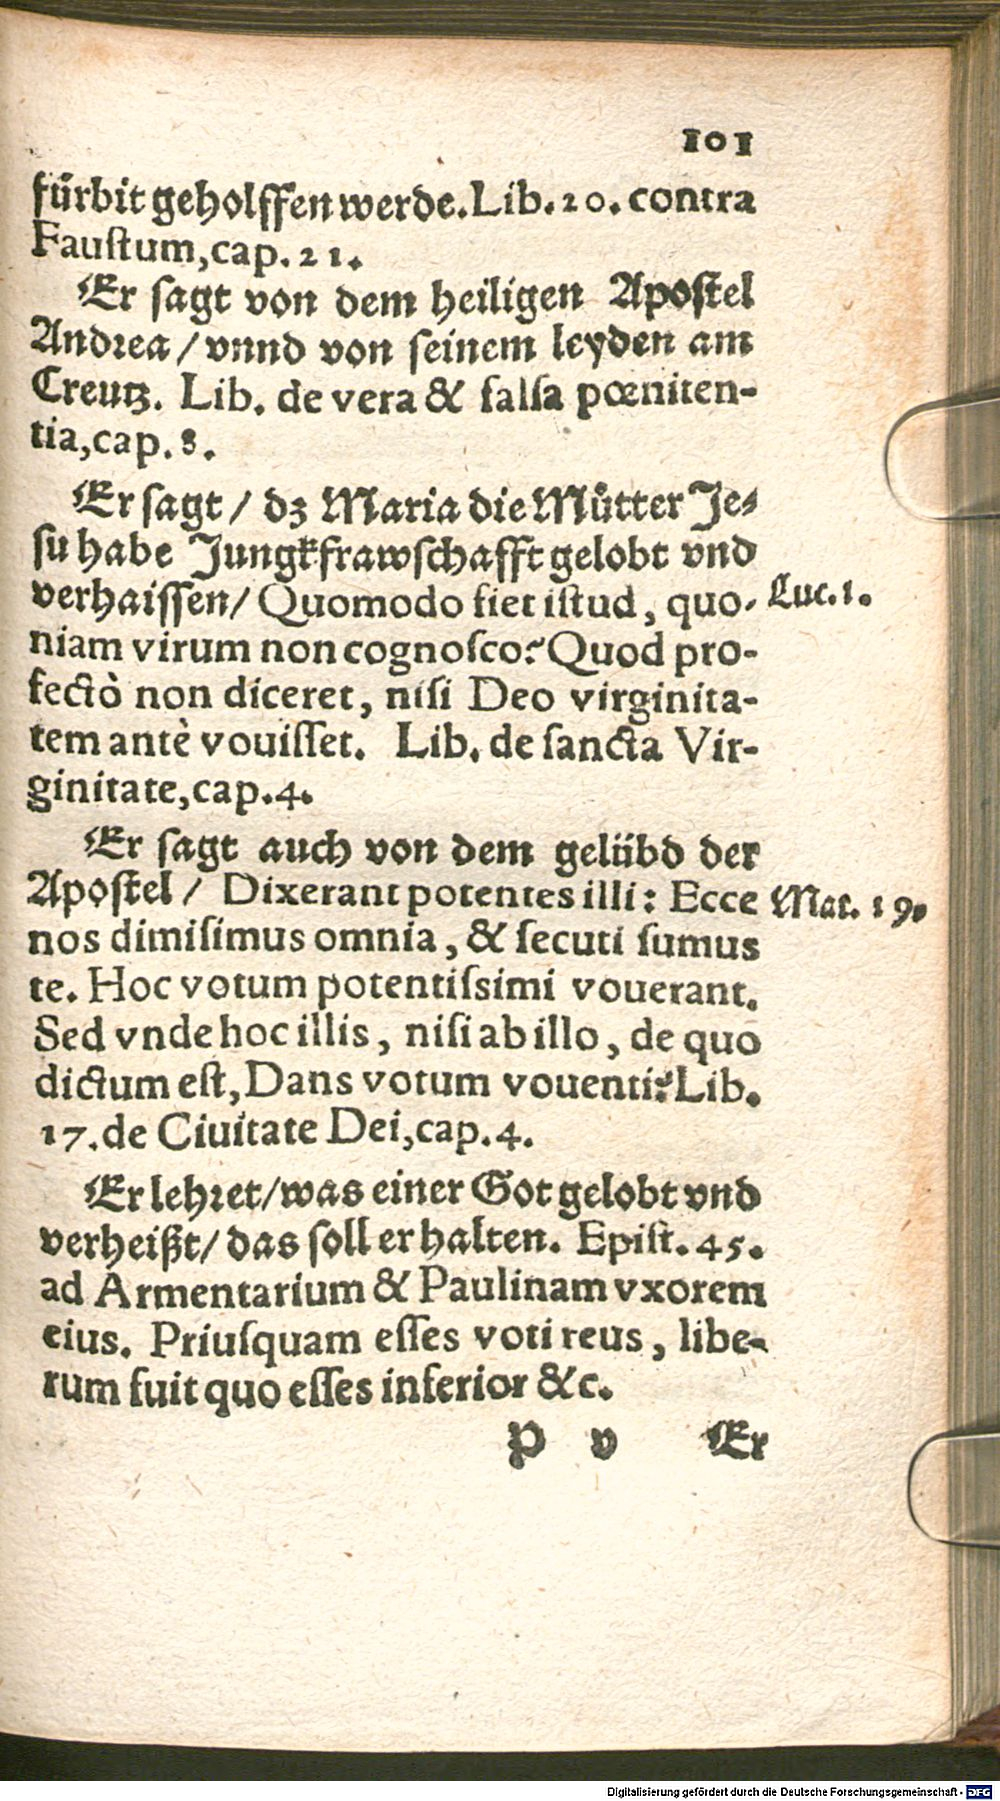 101
fürbit geholffen werde. Lib. 20. contra
Faustum, cap. 21.
Er sagt von dem heiligen Apostel
Andrea / vnnd von seinem leyden am
Creutz. Lib. de vera & falsa pœniten-
tia, cap. 8.
Er sagt / dz Maria die Můtter Je-
su habe Jungkfrawschafft gelobt vnd
verhaissen/ Quomodo fiet istud, quo-
Luc. 1.
niam virum non cognosco? Quod pro-
fectò non diceret, nisi Deo virginita-
tem antè vouisset. Lib. de sancta Vir-
ginitate, cap. 4.
Er sagt auch von dem gelübd der
Apostel / Dixerant potentes illi: Ecce
Mat. 19.
nos dimisimus omnia, & secuti sumus
te. Hoc votum potentissimi vouerant.
Sed vnde hoc illis, nisi ab illo, de quo
dictum est, Dans votum vouenti? Lib.
17. de Ciuitate Dei, cap. 4.
Er lehret/was einer Got gelobt vnd
verheißt/ das soll er halten. Epist. 45.
ad Armentarium & Paulinam vxorem
eius. Priusquam esses voti reus, libe-
rum fuit quo esses inferior &c.
P v Er
Digitalisierung gefördert durch die Deutsche Forschungsgemeinschaft - DFG